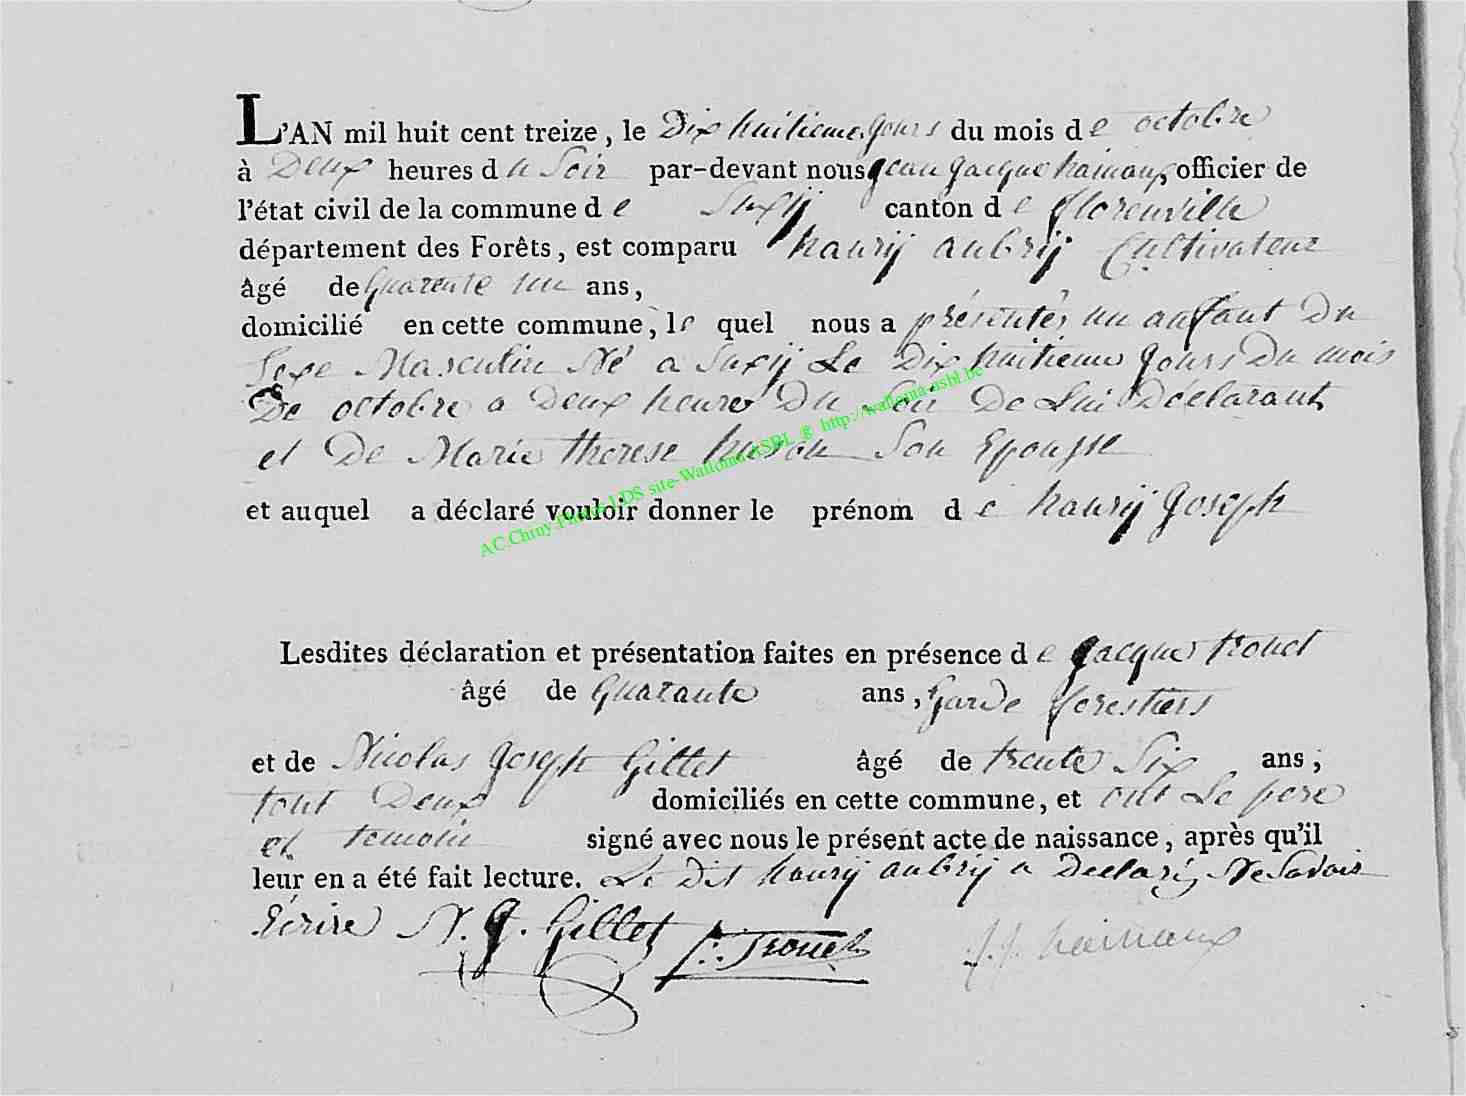 L'AN mil huit cent treize, le Dix huitieme jours du mois de octobre
à Deux heures du Soir par-devant nous jean jacque hainaux officier de
l'état civil de la commune de Suxÿ canton de florenville
département des Forêts, est comparu haurÿ aubrÿ Cultivateur
âgé de quarente un ans,
domicilié en cette commune, le quel nous a présentés un anfant Du
Sexe Masculin Né a Suxÿ Le Dix huitieme jours Du mois
De octobre a Deux heures Du Soir De Lui Déclarant
et De Marie therese husson Son Epousse
et auquel a déclaré vouloir donner le prénom de haurÿ joseph
AC.Chiny.Photos LDS site-Wallonia ASBL @ http://wallonia-asbl.be
Lesdites déclaration et présentation faites en présence de jacque trouet
âgé de quarante ans, garde forestiers
et de Nicolas joseph Gillet âgé de trente Six ans,
tout Deux domiciliés en cette commune, et ont Le pere
et temoin signé avec nous le présent acte de naissance, après qu'il
leur en a été fait lecture. Le Dit haurÿ aubrÿ a Declaré Ne Savoir
Ecrire N. J. Gillet J. Trouet J. J. hainaux